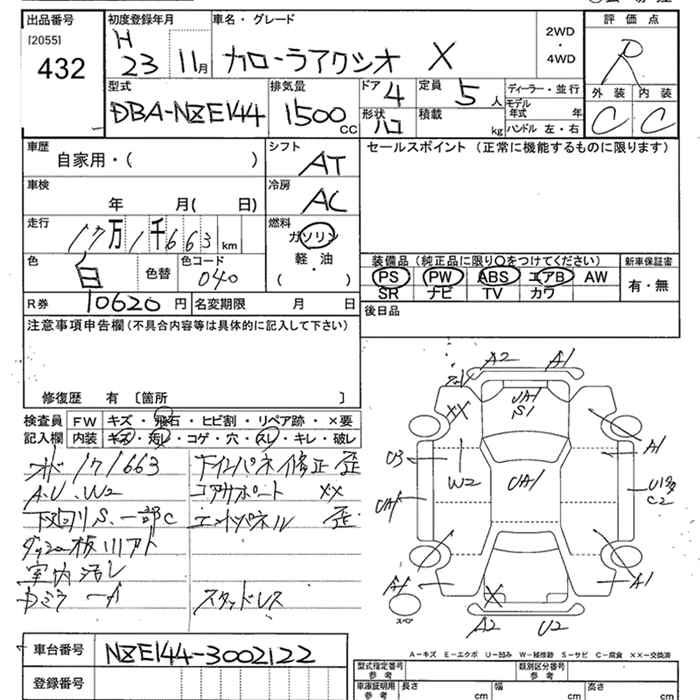 出品番号
[2055]
432
初度登録年月
H
23 11月
車名・グレード
カローラアクシオ X
2WD
・
4WD
評価点
R
外装 内装
C C
型式
DBA-NZE144
排気量
1500
CC
ドア
4
定員
5 人
形状
ハコ
積載
kg
ディーラー・並行
モデル
年式 年
ハンドル 左・右
車歴
自家用・( )
シフト
AT
車検
年 月( 日)
冷房
AC
走行
17万1千663 km
燃料
ガソリン
軽・油
( )
色
白
色替
色コード
040
R券
10620 円
名変期限 月 日
セールスポイント (正常に機能するものに限ります)
装備品 (純正品に限り○をつけてください)
PS PW ABS エアB AW
SR ナビ TV カワ
新車保証書
有・無
後日品
注意事項申告欄 (不具合内容等は具体的に記入して下さい)
修復歴 有 〔箇所 〕
検査員
記入欄
FW キズ・飛石・ヒビ割・リペア跡・×要
内装 キズ・汚レ・コゲ・穴・スレ・キレ・破レ
171663
A.U.W2
下廻りS.一部C
室内汚レ
下インパネ修正 歪
コアサポート XX
エンドパネル 歪
スタッドレス
A2 A1
XX
UA1
S1
A1
U3
W2
UA1
UA1
C2
A1
A1
X
スペア
A2 U2
A-キズ E-エクボ U-凹み W-補修跡 S-サビ C-腐食 XX-交換済
車台番号
NZE144-3002122
登録番号
型式指定番号
参考
類別区分番号
参考
車庫証明用
参考
長さ cm
幅 cm
高さ cm